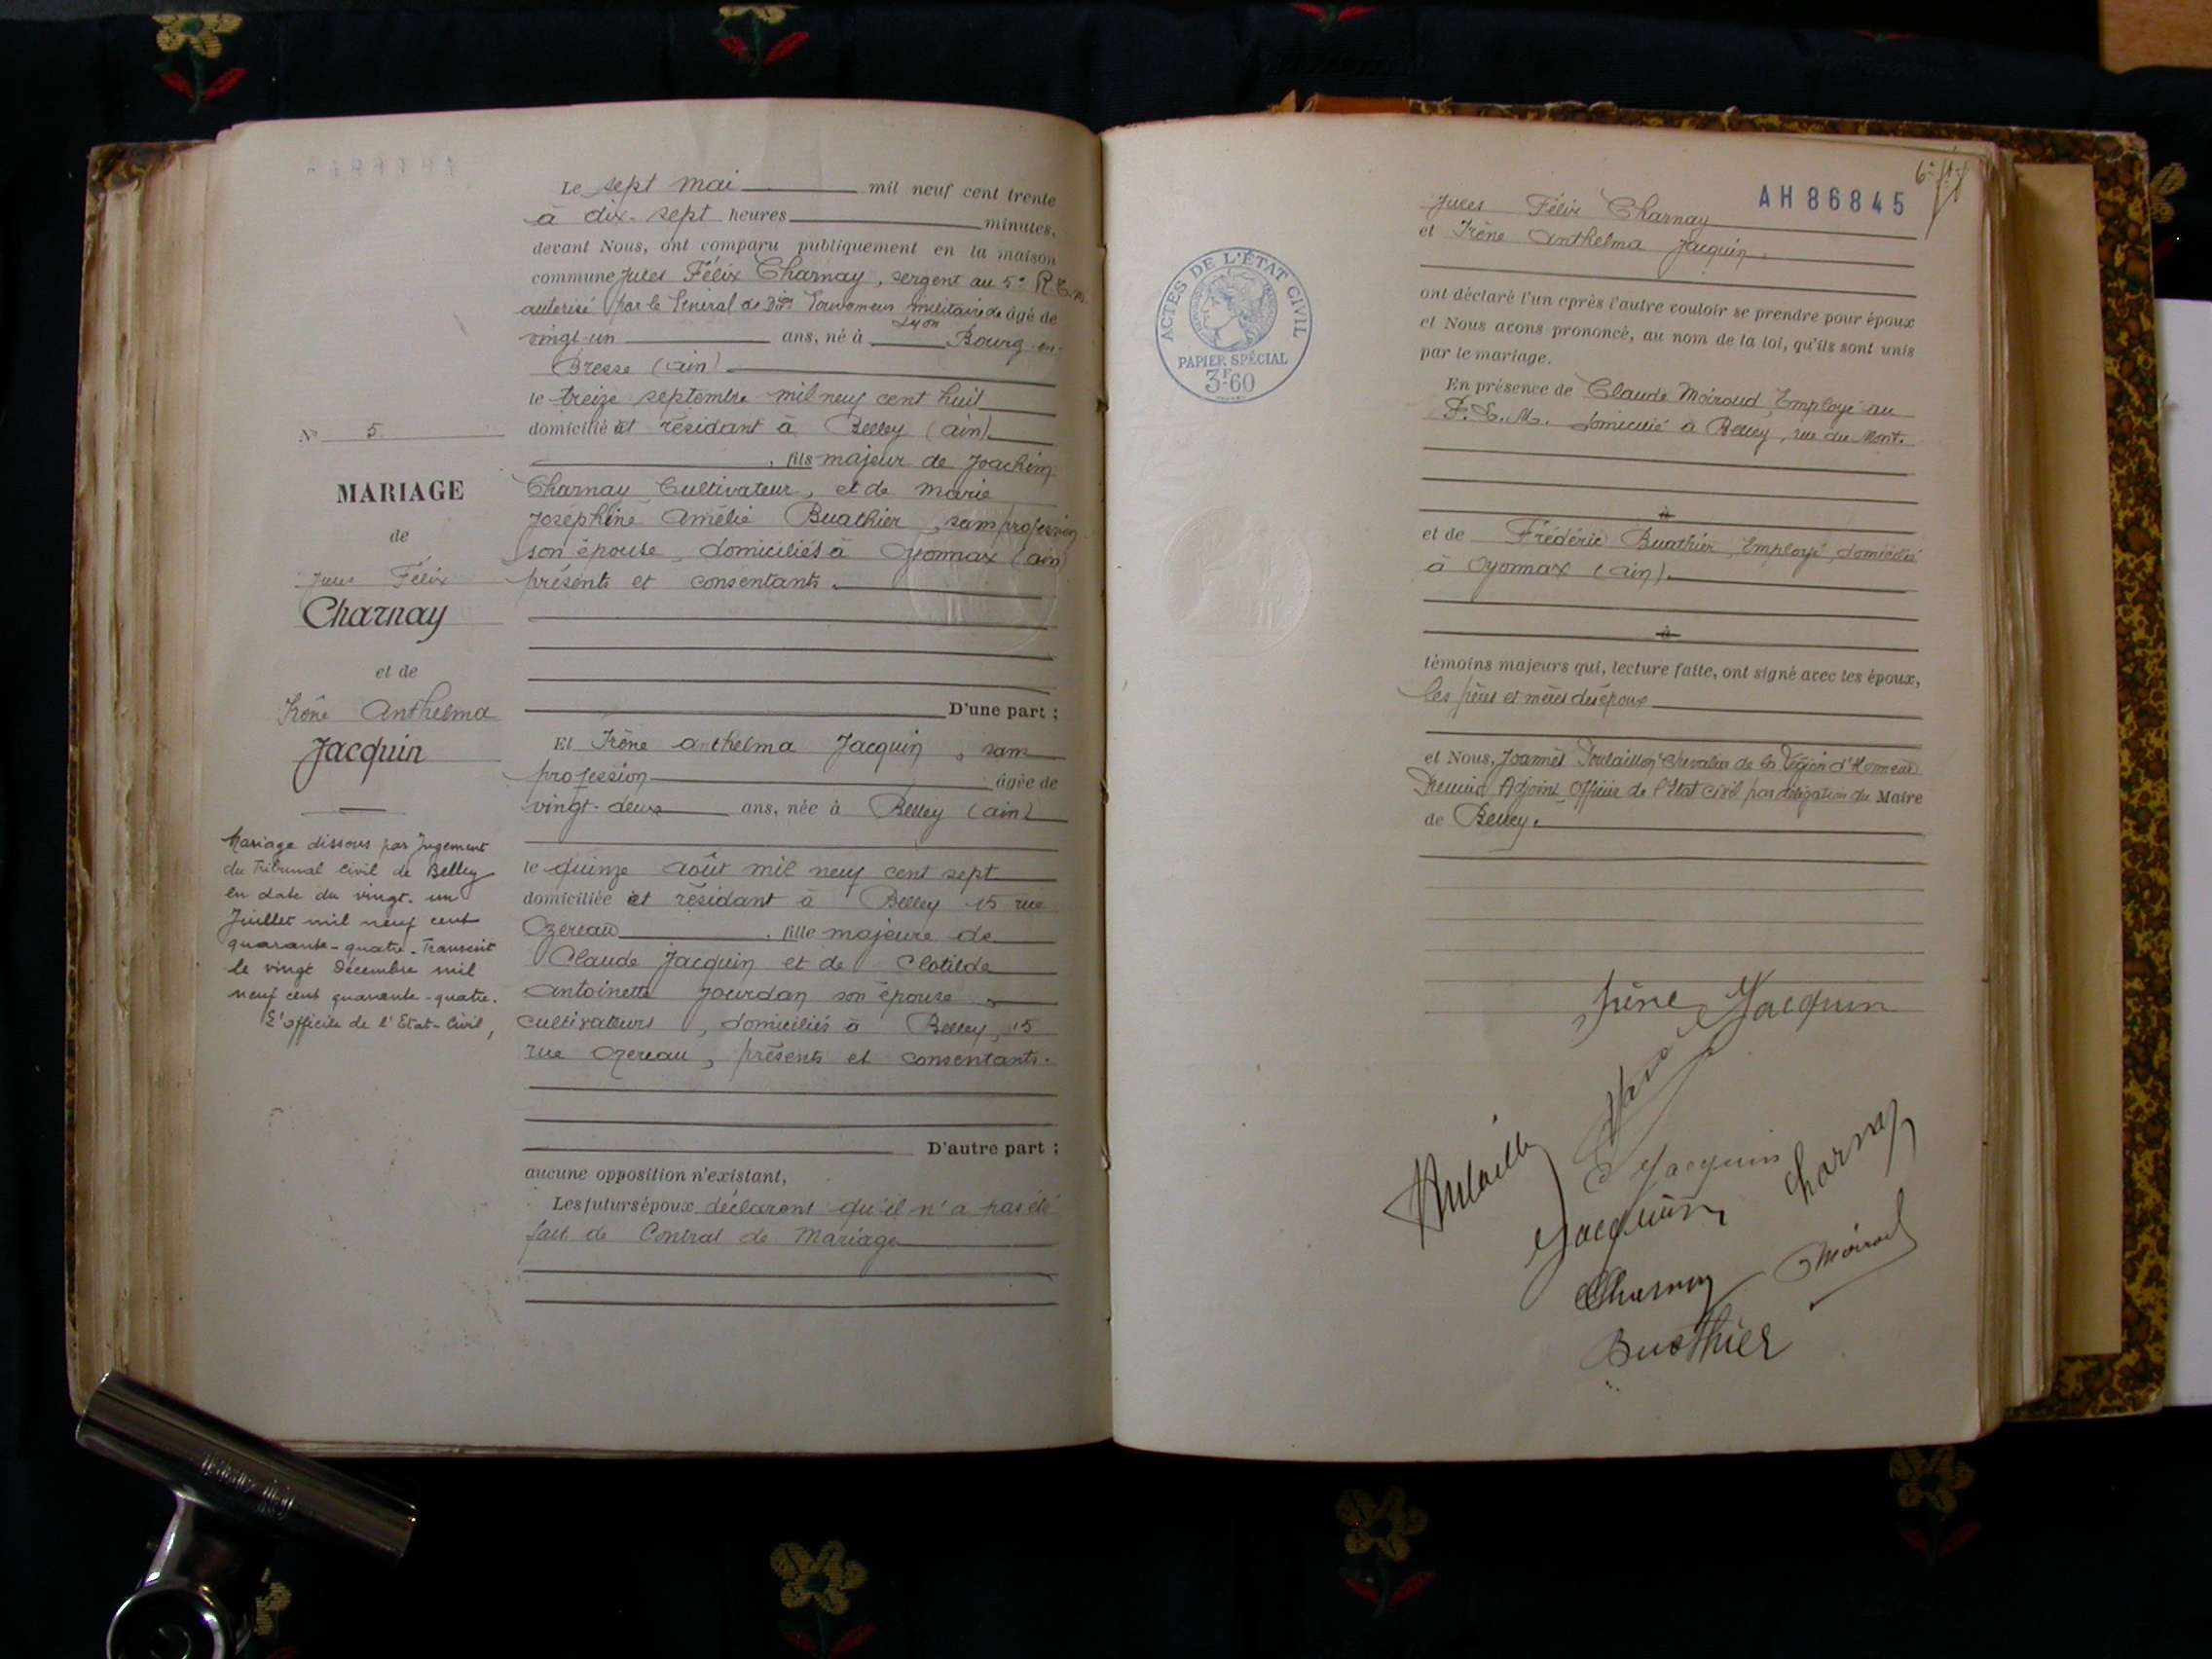 Le sept mai mil neuf cent trente
à dix-sept heures minutes,
devant Nous, ont comparu publiquement en la maison
commune Jules Félix Charnay, sergent au 5e
autorisé par le Général de Gouverneur militaire de Lyon âgé de
vingt-un ans, né à Bourg-en-
Bresse (Ain)
le treize septembre mil neuf cent huit
domicilié et résidant à Belley (Ain)
, fils majeur de Joachim
Charnay Cultivateur, et de Marie
Joséphine Amélie Buathier, sans profession
son épouse, domiciliés à Oyonnax (Ain)
présents et consentants.
D'une part ;
Et Irène Anthelma Jacquin, sans
profession âgée de
vingt-deux ans, née à Belley (Ain)
le quinze août mil neuf cent sept
domiciliée et résidant à Belley 15 rue
Ozereau , fille majeure de
Claude Jacquin et de Clotilde
Antoinette Jourdan son épouse
cultivateurs, domiciliés à Belley, 15
rue Ozereau, présents et consentants.
D'autre part ;
aucune opposition n'existant,
Les futurs époux déclarent qu'il n'a pas été
fait de Contrat de Mariage
N° 5
MARIAGE
de
Jules Félix
Charnay
et de
Irène Anthelma
Jacquin
Mariage dissous par Jugement
du Tribunal Civil de Belley
en date du vingt-un
Juillet mil neuf cent
quarante-quatre. Transcrit
le vingt Décembre mil
neuf cent quarante-quatre.
L'officier de l'Etat-Civil,
AH 86845
ACTES DE L'ÉTAT CIVIL
PAPIER SPÉCIAL
3F60
Jules Félix Charnay
et Irène Anthelma Jacquin.
ont déclaré l'un après l'autre vouloir se prendre pour époux
et Nous avons prononcé, au nom de la loi, qu'ils sont unis
par le mariage.
En présence de Claude Moiroud, Employé au
P.L.M. domicilié à Belley, rue du Mont.
à
et de Frédéric Buathier, Employé, domicilié
à Oyonnax (Ain).
à
témoins majeurs qui, lecture faite, ont signé avec les époux,
les pères et mères des époux
et Nous, Joannès Poulaillon Chevalier de la Légion d'Honneur
Premier Adjoint, Officier de l'Etat civil par délégation du Maire
de Belley.
Irène Jacquin
Jacquin
Charnay
Jacquin
Charnay
Moiroud
Buathier